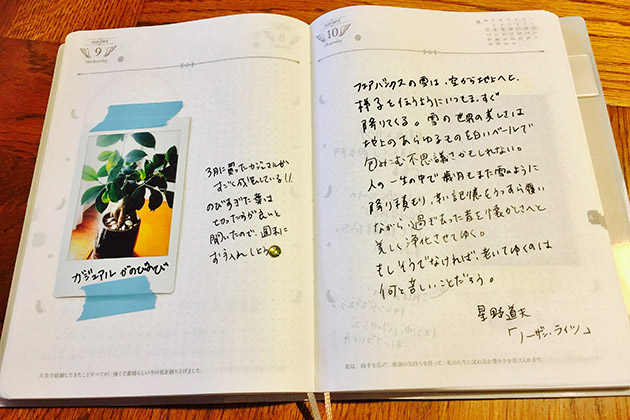 9
Wednesday
3月に買ったガジュマルが
すごく成長している!!
のびすぎた葉は
切った方が良いと
聞いたので、週末に
お手入れしよう
ガジュマル のびのび
人生で経験してきたことすべてが、強くて素晴らしい今の私を創り上げました。
10
Thursday
8
フェアバンクスの雪は、空から地上へと、
様子を伺うようにいつもまっすぐ
降りてくる。雪の世界の美しさは
地上のあらゆるものを白いベールで
包みこむ不思議さかもしれない。
人の一生の中で歳月もまた雪のように
降り積もり、辛い記憶をうっすらと覆い
ながら、過ぎ去った昔を懐かしさへと
美しく浄化させてゆく。
もしそうでなければ、老いてゆくのは
何と苦しいことだろう。
星野道夫
「ノーザン・ライツ」
私は、両手を広げ、感謝の気持ちを持って、私の人生に流れ込む豊かさを受け入れます。